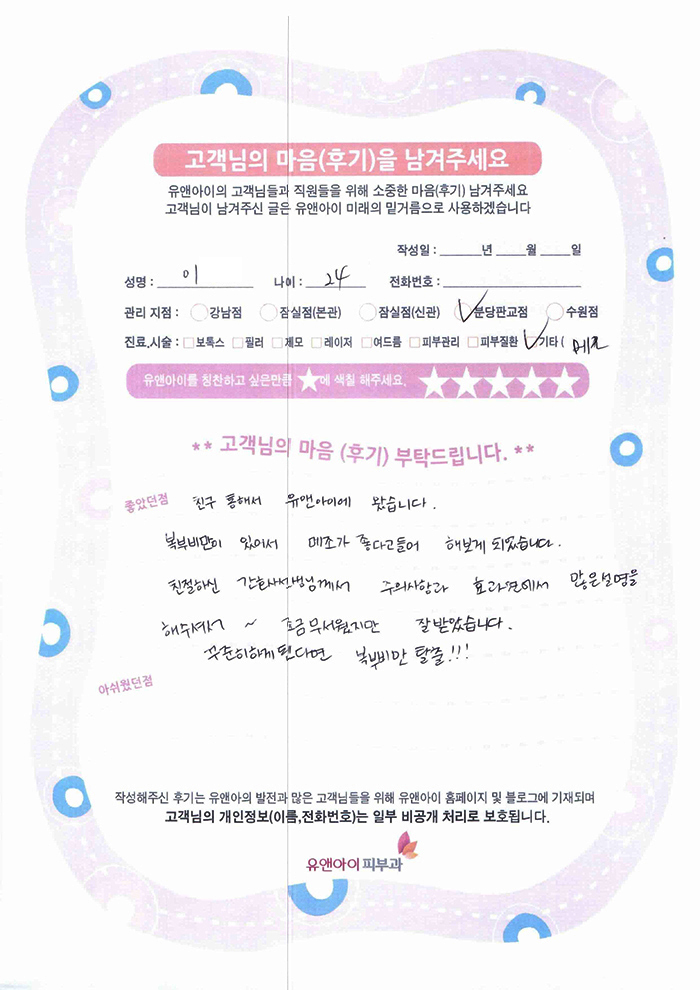 고객님의 마음(후기)을 남겨주세요
유앤아이의 고객님들과 직원들을 위해 소중한 마음(후기) 남겨주세요
고객님이 남겨주신 글은 유앤아이 미래의 밑거름으로 사용하겠습니다
작성일 : ______년 _____월 ____일
성명 : 이 나이 : 24 전화번호 :
관리 지점 : 강남점 잠실점(본관) 잠실점(신관) 분당판교점 수원점
진료,시술 : 보톡스 필러 제모 레이저 여드름 피부관리 피부질환 기타 ( 메조
유앤아이를 칭찬하고 싶은만큼 ★에 색칠 해주세요. ★★★★★
** 고객님의 마음 (후기) 부탁드립니다. **
좋았던점 친구 통해서 유앤아이에 왔습니다.
복부비만이 있어서 메조가 좋다고들어 해보게 되었습니다.
친절하신 간호사선생님께서 주의사항과 효과면에서 많은설명을
해주셔서 ~ 조금 무서웠지만 잘 받았습니다.
꾸준히하게 된다면 복부비만 탈출!!!
아쉬웠던점
작성해주신 후기는 유앤아의 발전과 많은 고객님들을 위해 유앤아이 홈페이지 및 블로그에 기재되며
고객님의 개인정보(이름,전화번호)는 일부 비공개 처리로 보호됩니다.
유앤아이피부과